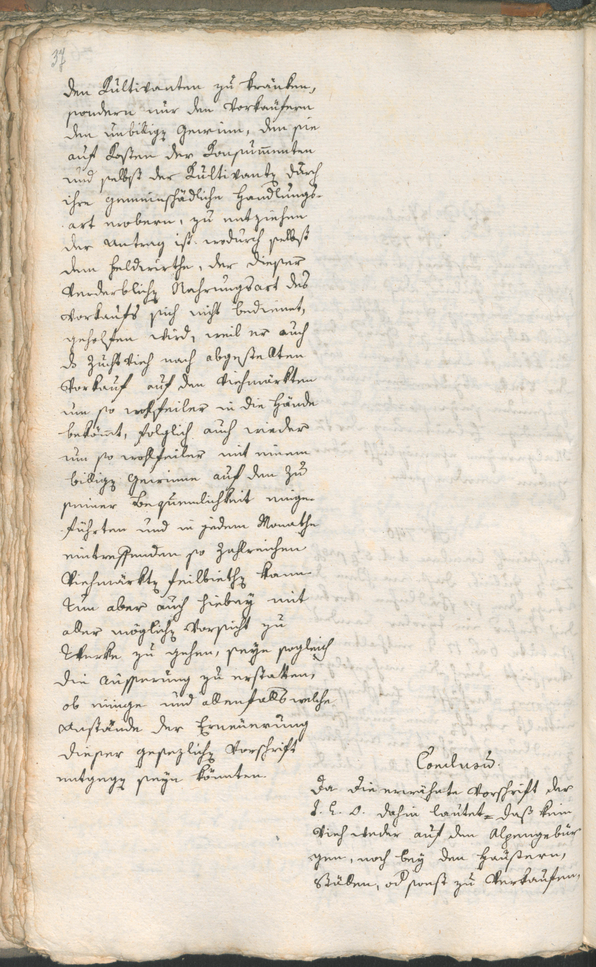 37
den Kultivanten zu kränken,
sondern nur den Vorkäufern
den unbillig Gewinn, den sie
auf Kosten der Konsumenten
und selbst der Kultivants durch
ihre gemeinschädliche Handlungs-
art erobern, zu entziehen
der Antrag ist, wodurch selbst
dem Feldwirthe, der dieser
verderblich Nahrungsart des
Vorkaufs sich nicht bedienet,
geholfen wird, weil er auch
Zuchtvieh nach abgestellten
Vorkauf auf den Viehmärkten
um so wohlfeiler in die Hände
bekömt, folglich auch wieder
um so wohlfeiler mit einem
billig Gewinne auf den zu
seiner Bequemlichkeit einge-
führten und in jedem Monathe
eintreffenden so zahlreichen
Viehmärkt feilbieth kann.
Nun aber auch hiebey mit
aller möglich Vorsicht zu
Werke zu gehen, seye sogleich
die Äusserung zu erstatten,
ob einige und allenfalls welche
Anstände der Erneuerung
dieser gesezlich Vorschrift
entgegen seyn könnten.
Conclusum.
Da die erwähnte Vorschrift der
T. L. O. dahin lautet = daß kein
Vieh weder auf den Alpengebür
gen, noch bey den Häusern,
Ställen, od sonst zu verkaufen,